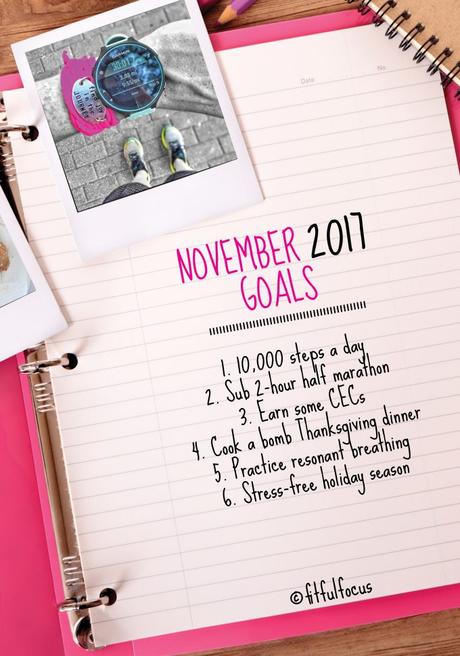 Date
No.
NOVEMBER 2017
GOALS
1. 10,000 steps a day
2. Sub 2-hour half marathon
3. Earn some CECs
4. Cook a bomb Thanksgiving dinner
5. Practice resonant breathing
6. Stress-free holiday season
©fitfulfocus